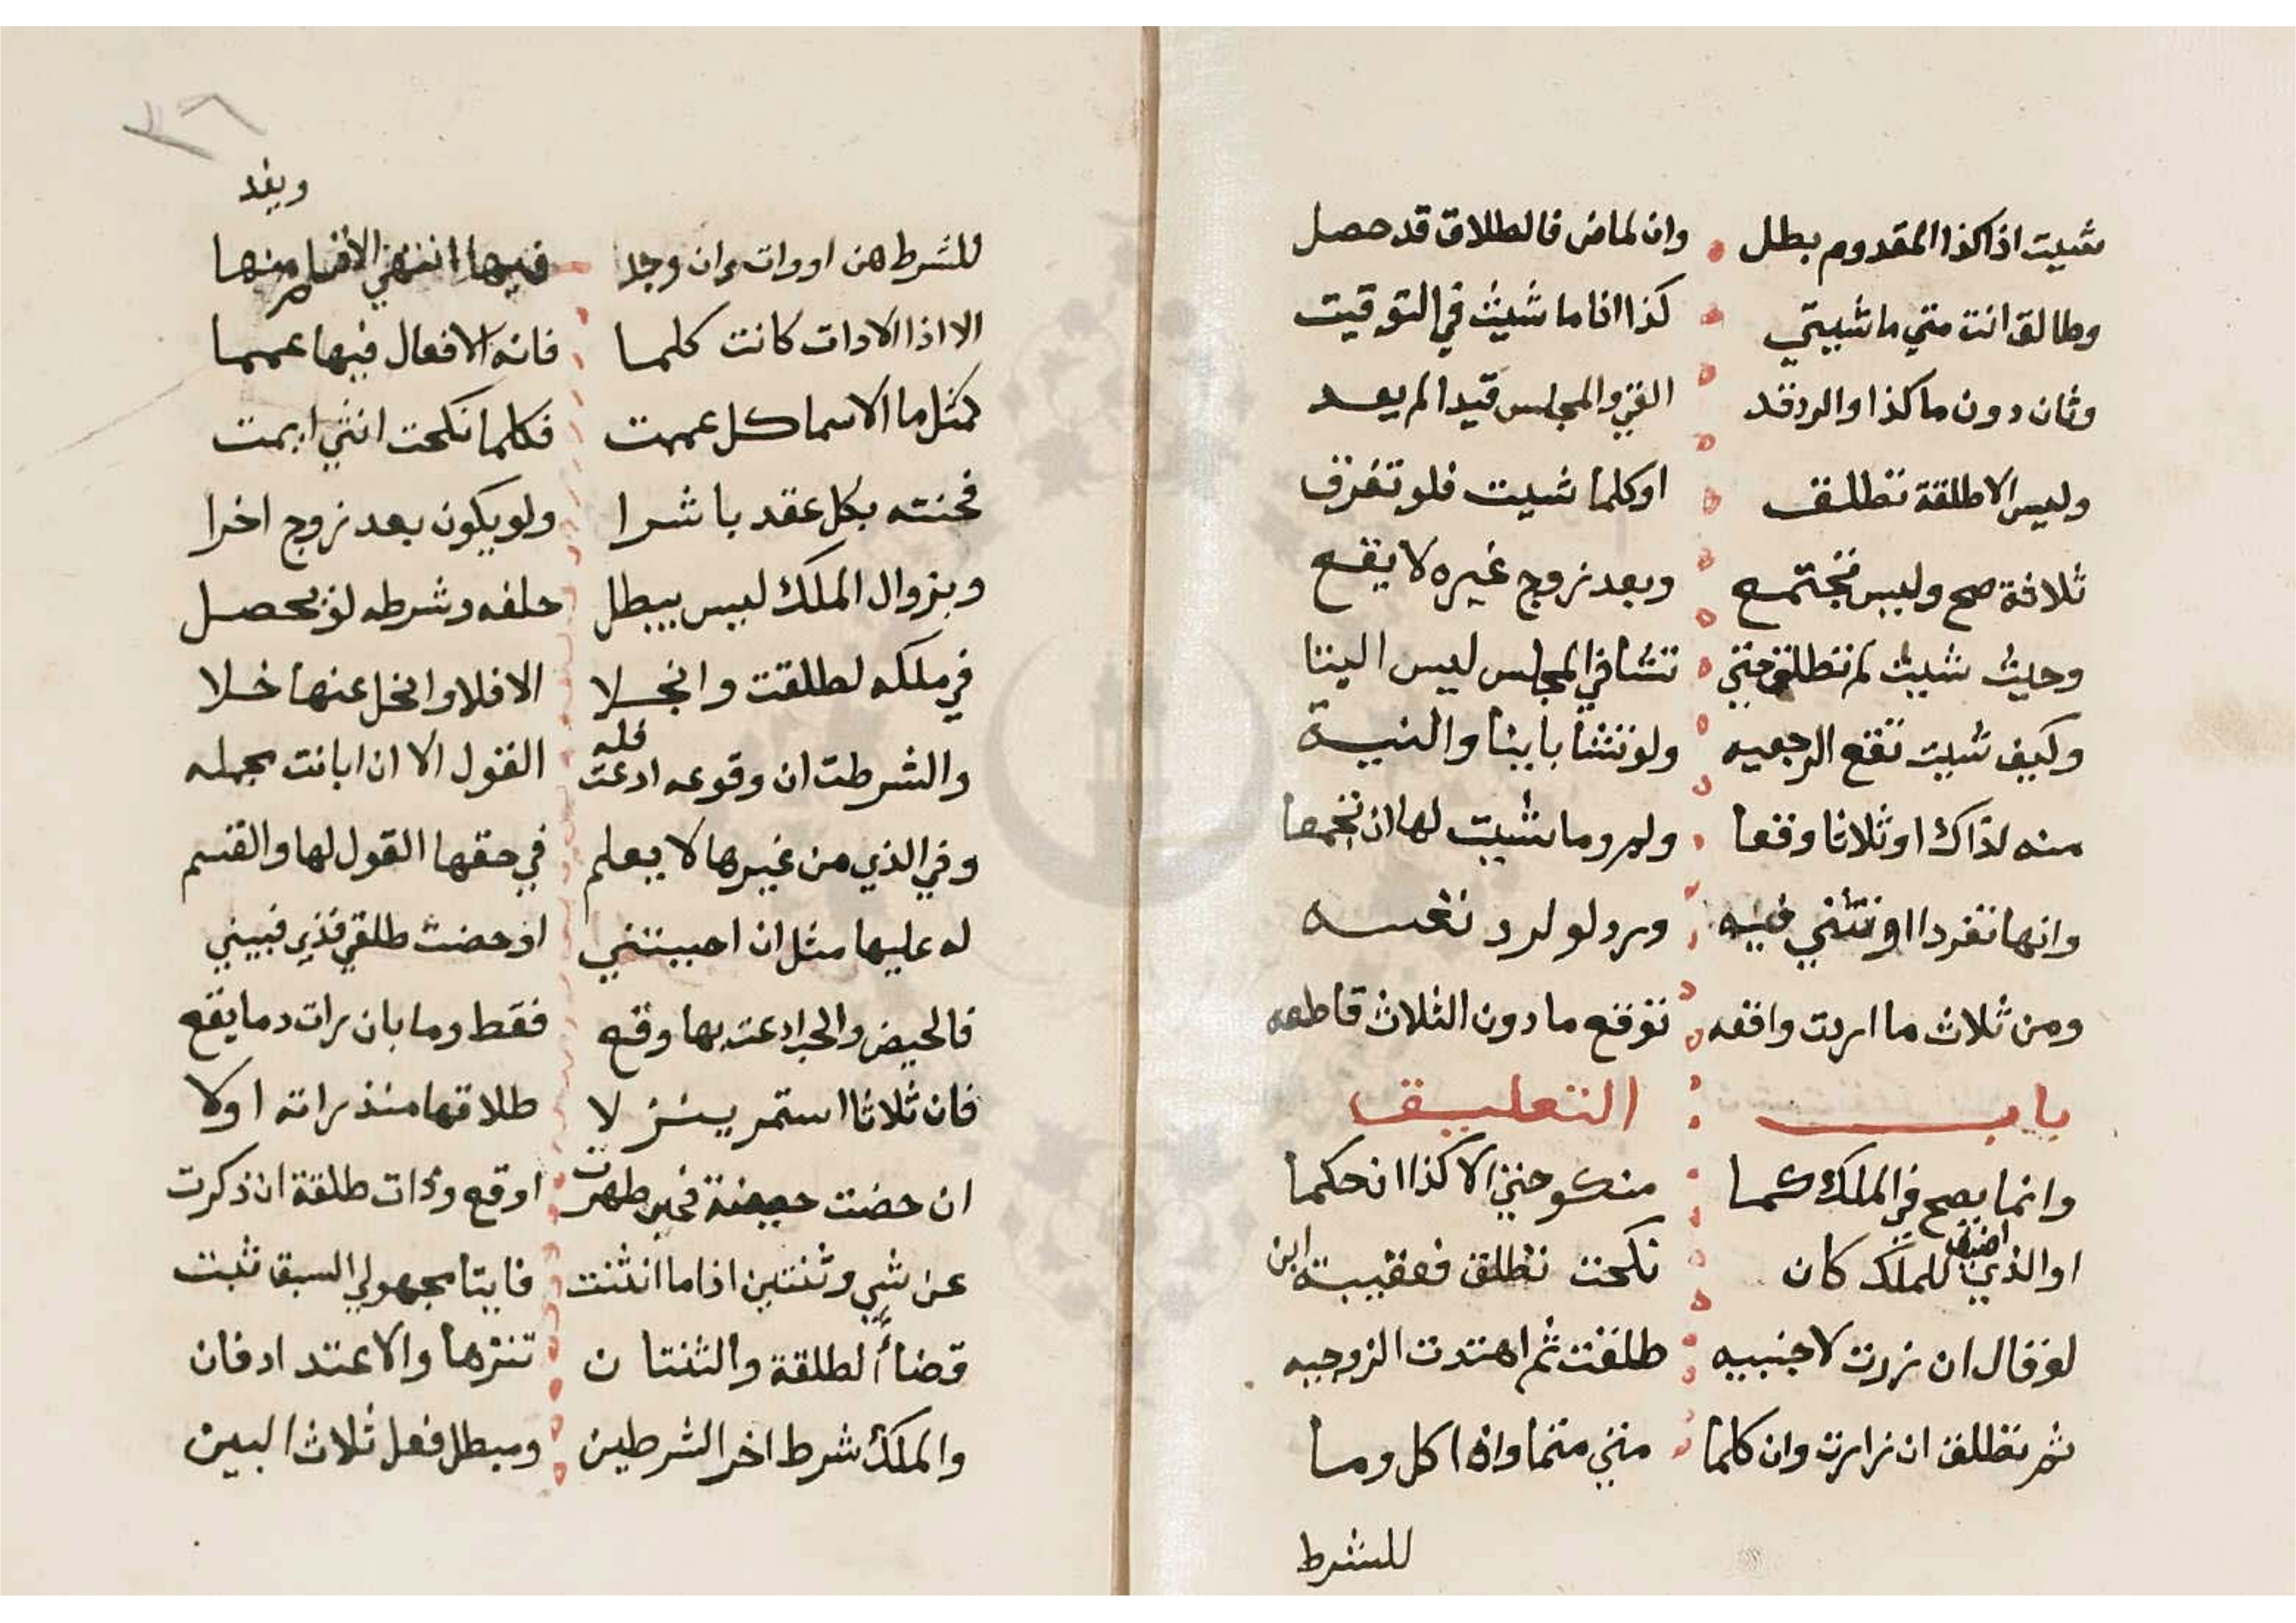 شيت اذا كذا المقدوم بطل وان لماض فالطلاق قد حصل
وطالق انت متي ما شييتي كذا اذا ما شيئت في التوقيت
وثان دون ما كذا والرد قد الغي والمجلس قيدا لم يعد
وليس الا طلقة تطلق او كلما شيت فلو تفرق
ثلاثة صح وليس تجتمع وبعد زوج غيره لا يقع
وحيث شيت لم تطلق حتي تشا في المجلس ليس البتا
وكيف شيت تقع الرجعيه ولو تشا باينا والنية
منه لذاك او ثلاثا وقعا ولم وما شيت لها ان تجمعا
وانها تفردا او تثني فيه ورد لو لرد نفسه
ومن ثلاث ما اردت واقعه توقع ما دون الثلاث قاطعه
باب التعليق
وانما يصح في الملك كما منكوحتي الا كذا ان حكما
او الذي اضيف للملك كان نكحت تطلق فعقيبه ابن
لو قال ان زرت لاجنبيه طلقت ثم اهتدت الزوجيه
ثم تطلق ان زارت وان كلما متي متما واذا كل وما
للشرط
ويفد
للشرط هن ادوات وان وجد فيها انتهي الافيا منها
الا اذا الادات كانت كلما فانه الافعال فيها عمما
كمثل ما الاسما كل عممت فكلما نكحت انثي ايمت
فحنثه بكل عقد باشرا ولو يكون بعد زوج اخرا
وبزوال الملك ليس يبطل حلفه وشرطه لو يحصل
في ملكه لطلقت وانحلا الا فلا وانحل عنها خلا
والشرط ان وقوعه ادعت فله القول الا ان ابانت بجمله
وفي الذي من غيرها لا يعلم في حقها القول لها والقسم
له عليها مثل ان احببتني او حضت طلقي فذي فبيني
فالحيض والحب ادعته بها وقع فقط وما بان رات دما يقع
فان ثلاثا استمر ينزلا طلاقها منذ راته اولا
ان حضت حيضة فحين طهرت اوقع وذات طلقة ان ذكرت
عن شي وثنتين اذا ما انثنت فايتا مجهولي السبق ثبت
قضاء الطلقة والثنتان تنزها والاعتداد فان
والملك شرط اخر الشرطين ومبطل فعل ثلاث البين